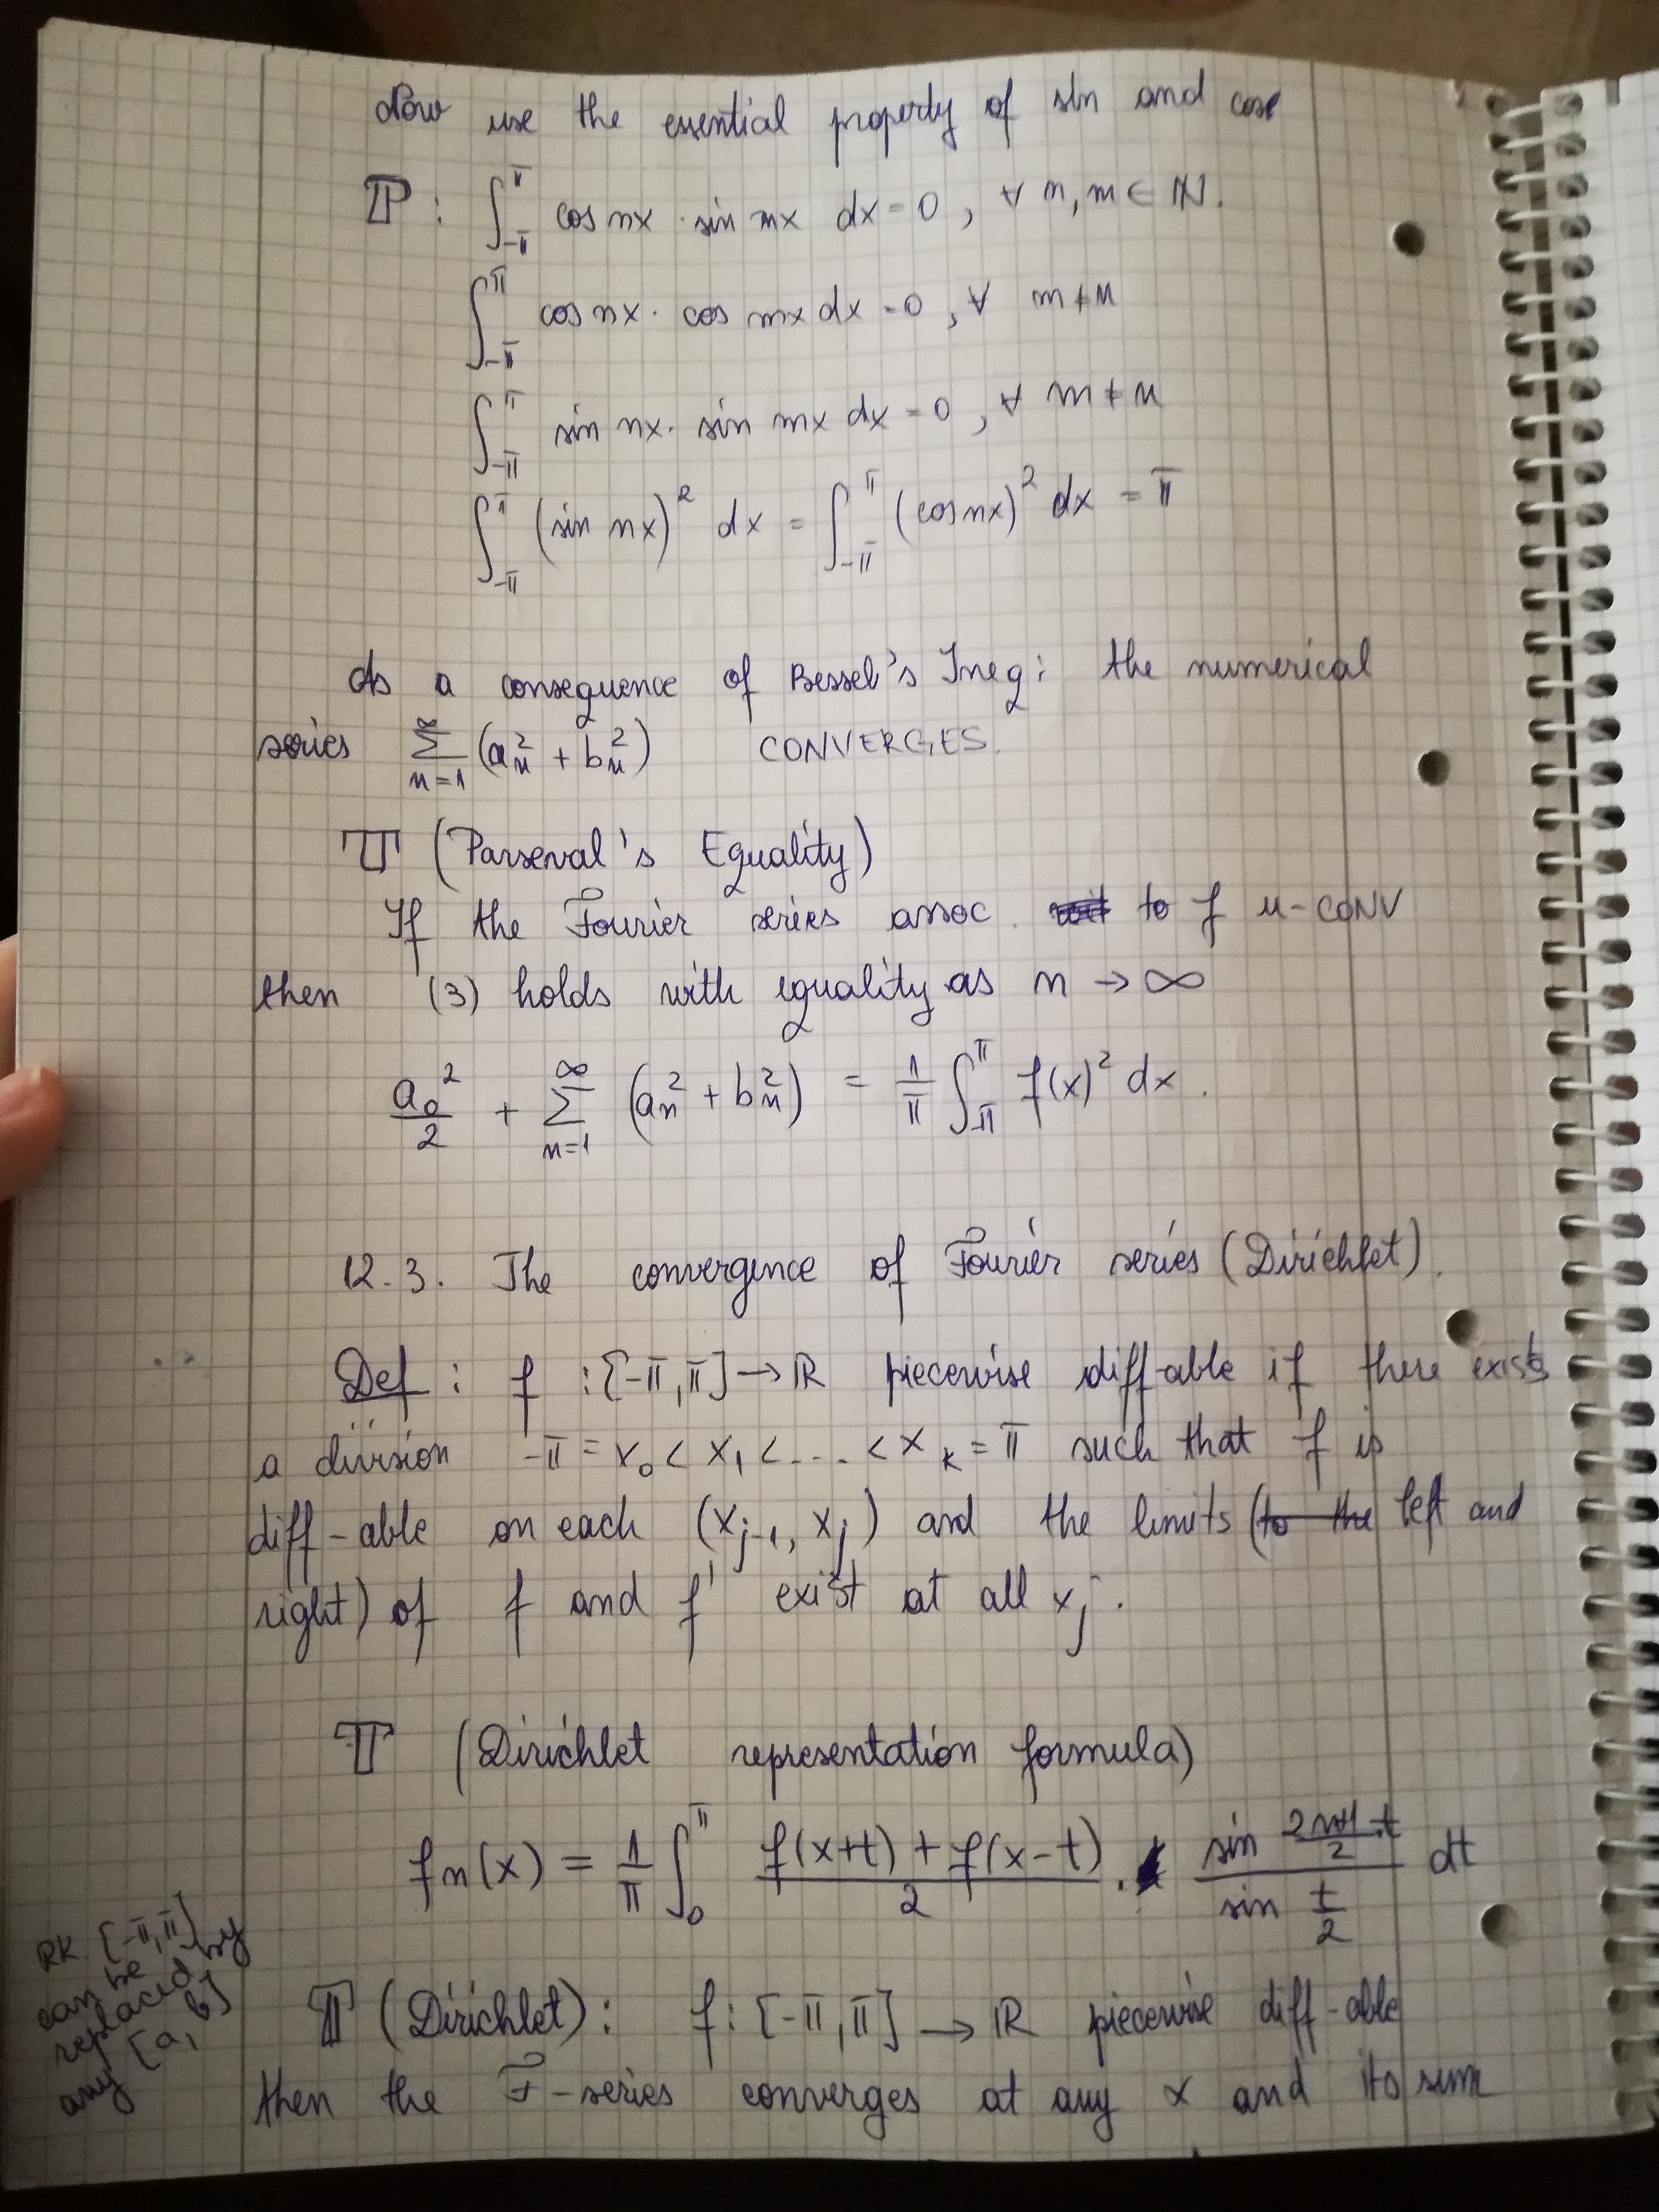 Now use the essential property of sin and cos
ℙ: ∫_{-π}^{π} cos nx · sin mx dx = 0, ∀ n, m ∈ ℕ.
∫_{-π}^{π} cos nx · cos mx dx = 0, ∀ m ≠ n
∫_{-π}^{π} sin nx · sin mx dx = 0, ∀ m ≠ n
∫_{-π}^{π} (sin nx)² dx = ∫_{-π}^{π} (cos nx)² dx = π
As a consequence of Bessel's Ineq: the numerical
series ∑_{n=1}^{∞} (a_n² + b_n²) CONVERGES.
𝕋 (Parseval's Equality)
If the Fourier series assoc. to f u-conv
then (3) holds with equality as n → ∞
a_0²/2 + ∑_{n=1}^{∞} (a_n² + b_n²) = 1/π ∫_{-π}^{π} f(x)² dx.
12.3. The convergence of Fourier series (Dirichlet).
Def: f : [-π, π] → ℝ piecewise diff-able if there exists
a division -π = x_0 < x_1 < .... < x_k = π such that f is
diff-able on each (x_{j-1}, x_j) and the limits (to the left and
right) of f and f' exist at all x_j.
𝕋 (Dirichlet representation formula)
f_n(x) = 1/π ∫_0^π (f(x+t) + f(x-t))/2 · (sin (2n+1)/2 · t)/(sin t/2) dt
RK. [-π, π]
can be
replaced by
any [a, b]
𝕋 (Dirichlet): f : [-π, π] → ℝ piecewise diff-able
then the F-series converges at any x and its sum